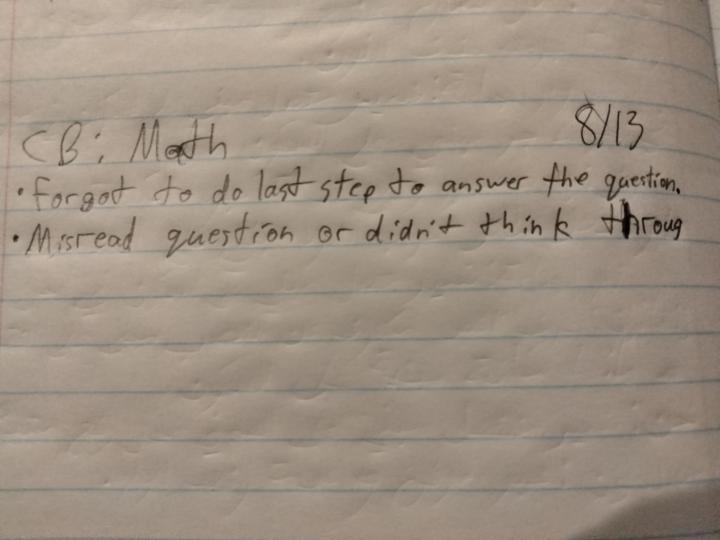 CB: Math 8/13
• Forgot to do last step to answer the question.
• Misread question or didn't think throug